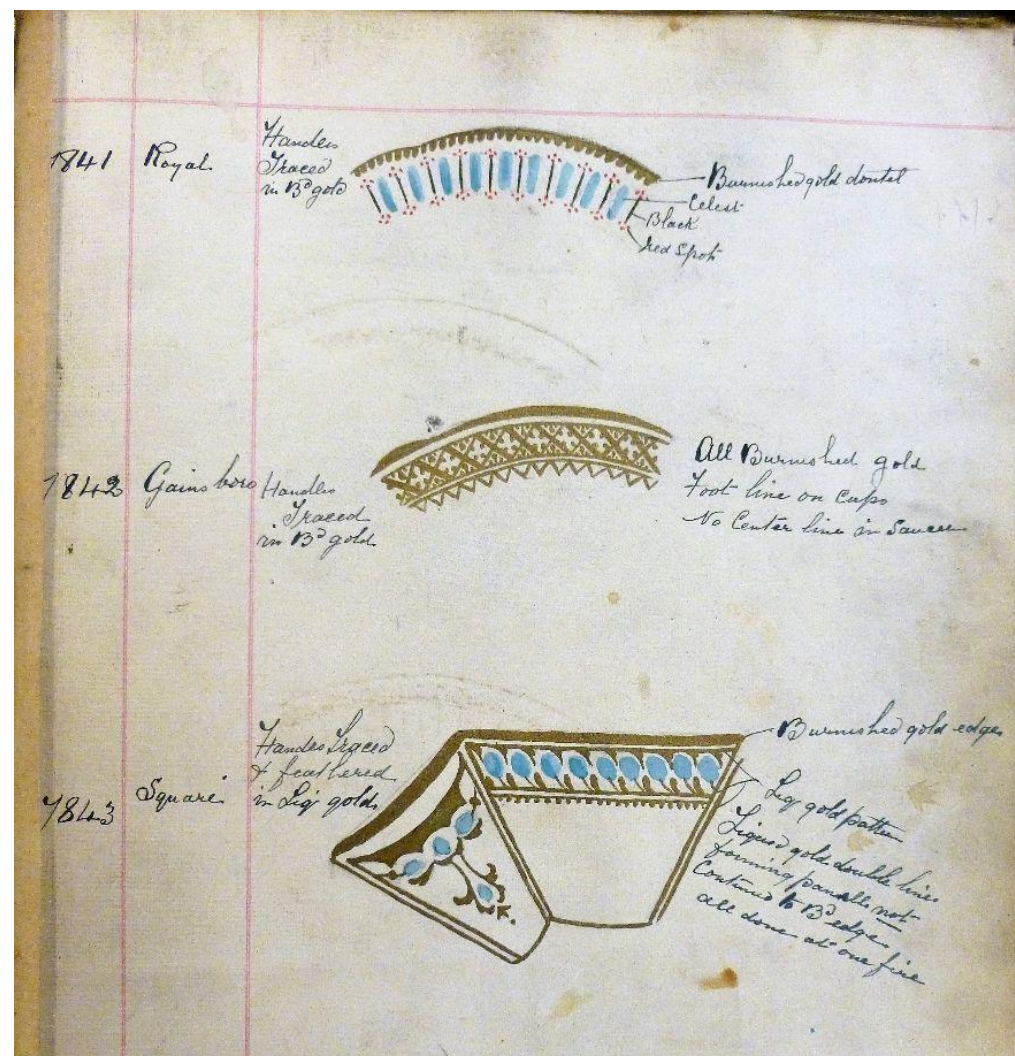 7841 Royal Handles
Traced
in Bd gold
Burnished gold dontel
Celest
Black
red Spots
7842 Gainsboro Handles
Traced
in Bd gold
All Burnished gold
Foot line on Cups
No Center line in Saucer
7843 Square Handles Traced
& feathered
in Liq gold
Burnished gold edges
Liq gold pattern
Liquid gold double lines
forming panells not
Continued to Bd edge
all done at one fire